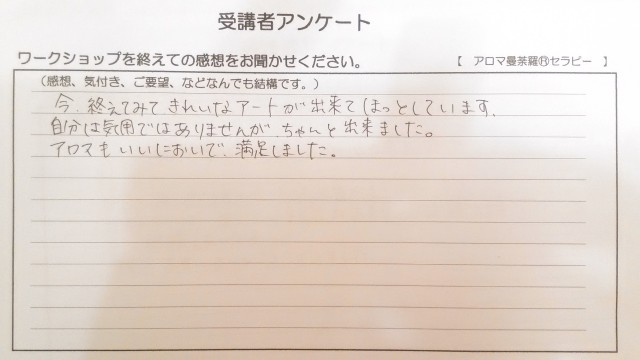 受講者アンケート
ワークショップを終えての感想をお聞かせください。 【 アロマ曼荼羅Ⓡセラピー 】
(感想、気付き、ご要望、などなんでも結構です。)
今、終えてみて きれいなアートが出来て ほっとしています。
自分は気用ではありませんが、ちゃんと出来ました。
アロマもいいにおいで、満足しました。